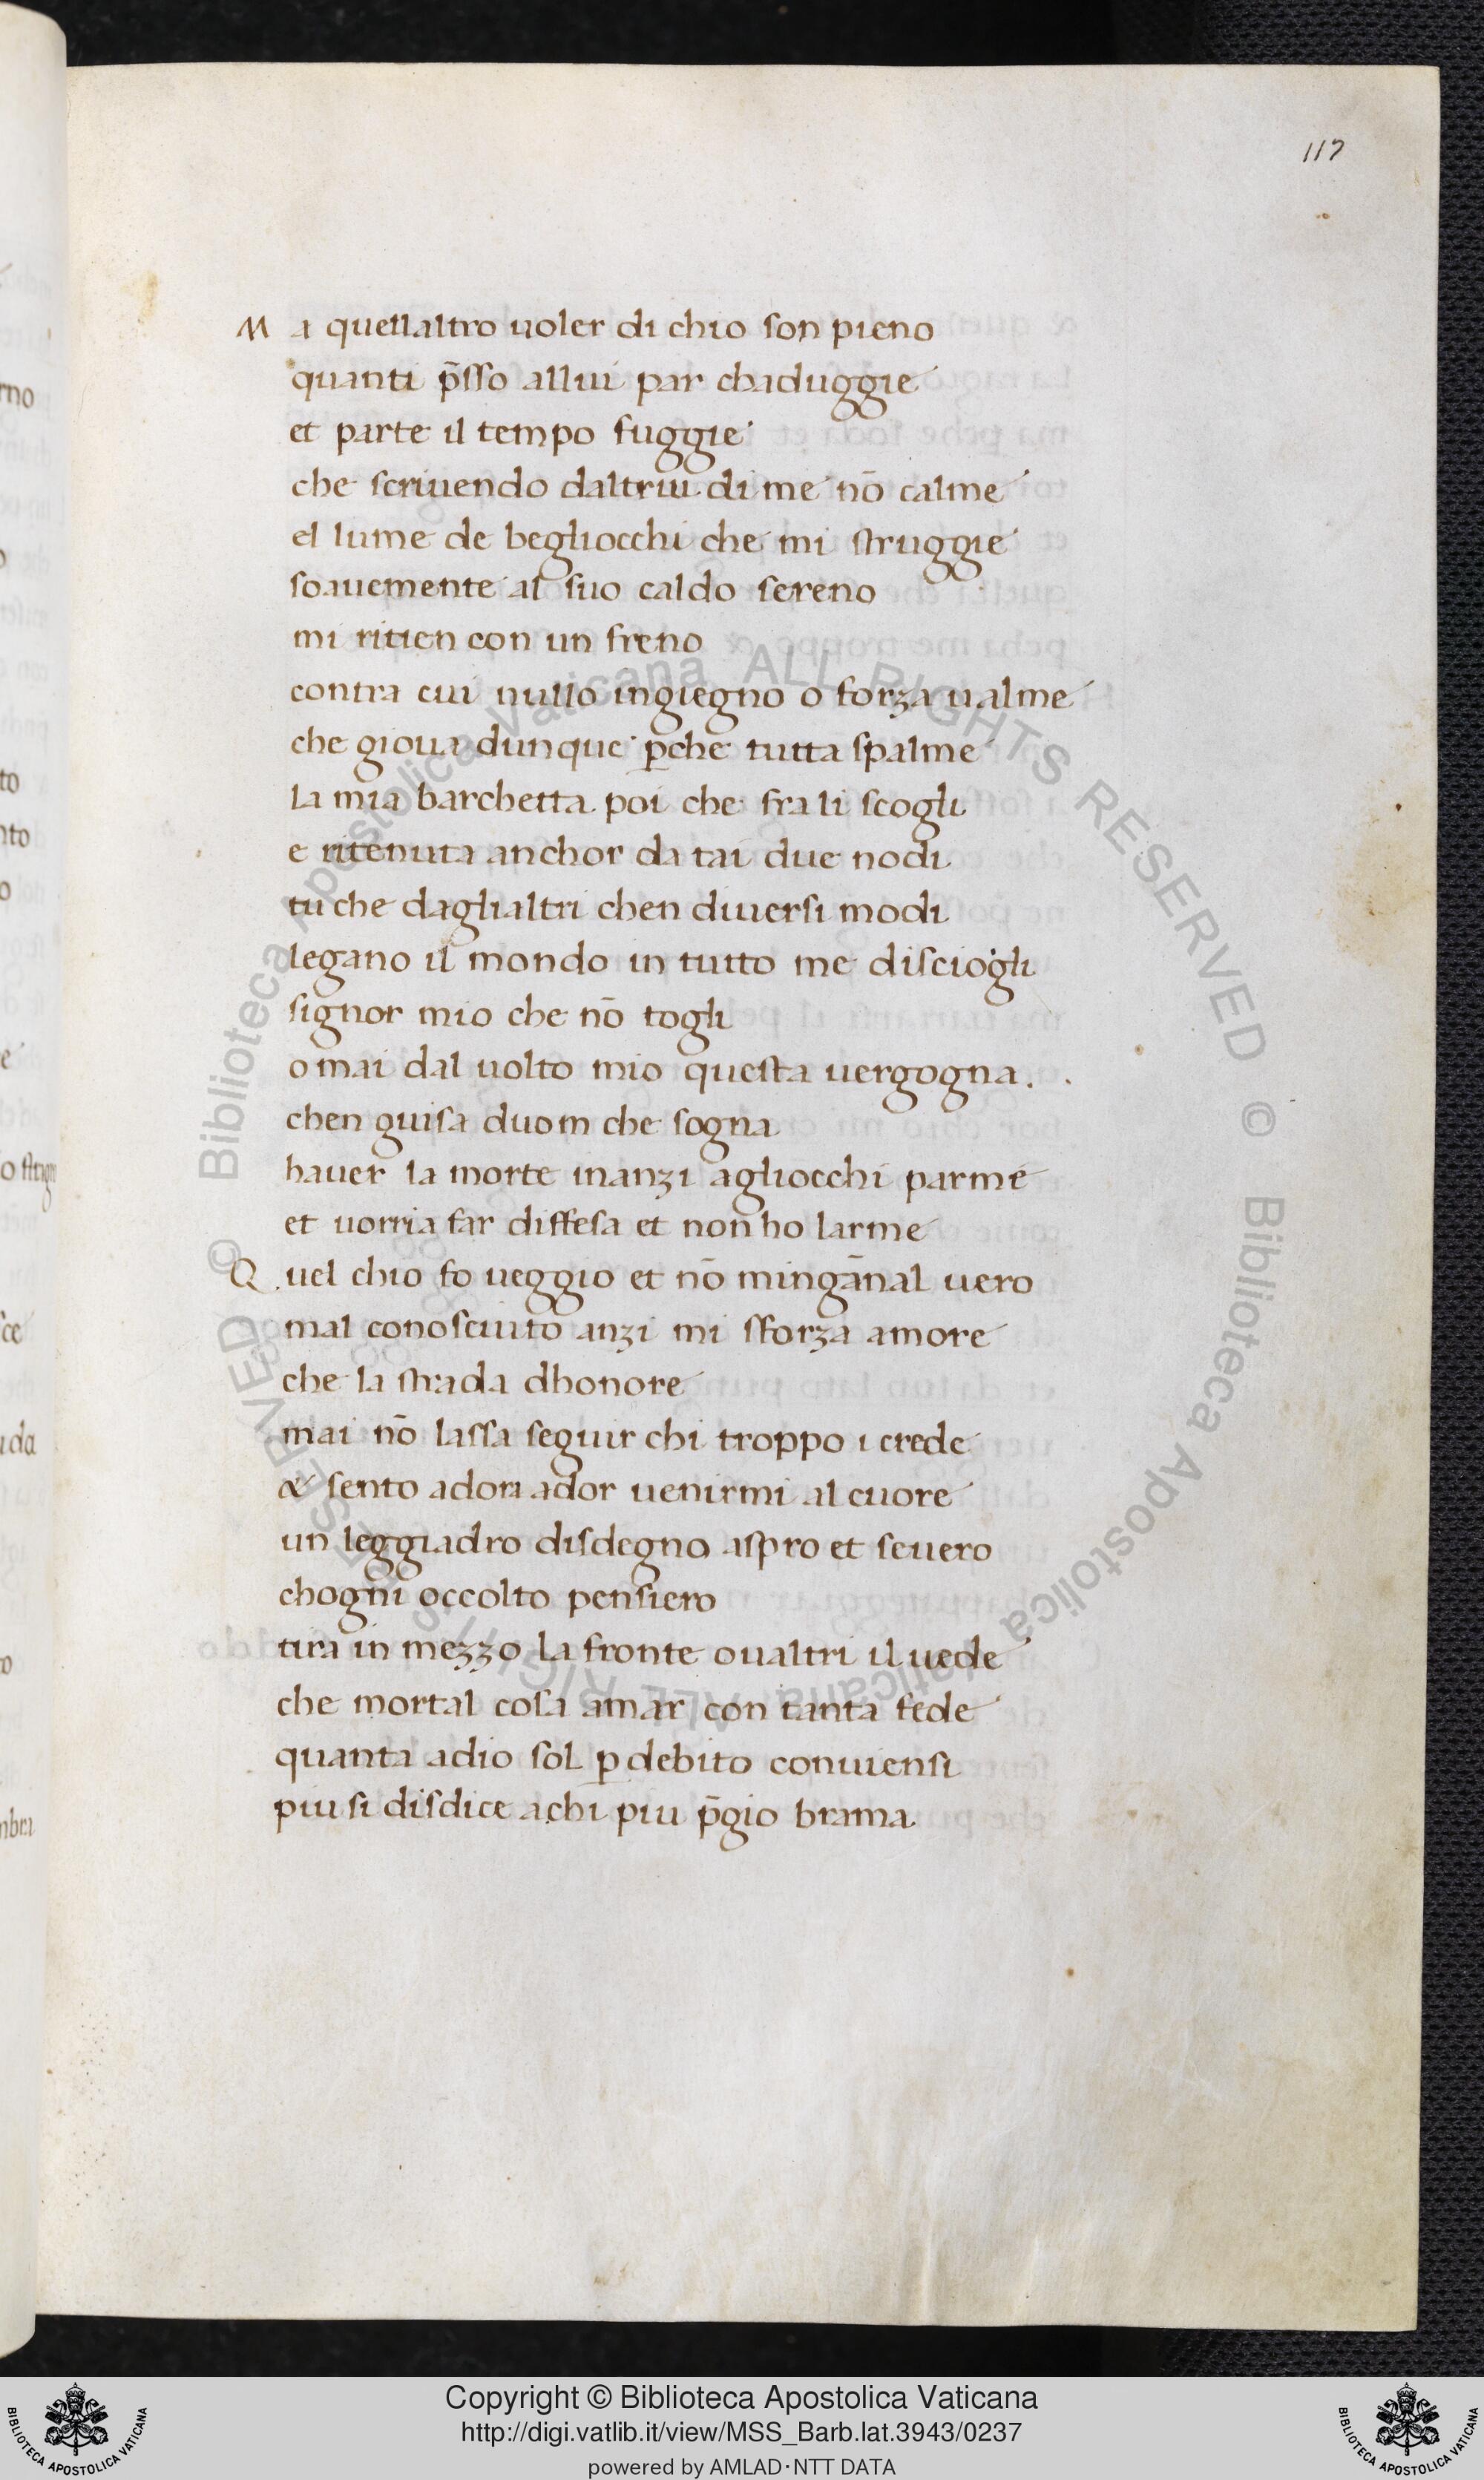 117
Ma quellaltro uoler di chio son pieno
quanti p̄sso allui par chaduggie
et parte il tempo fuggie
che scriuendo daltrui di me nō calme
el lume de begliocchi che mi struggie
soauemente al suo caldo sereno
mi ritien con un freno
contra cui nullo ingiegno o forza ualme
che gioua dunque ꝑche tutta spalme
la mia barchetta poi che fra li scogli
e ritenuta anchor da tai due nodi
tu che daglialtri chen diuersi modi
legano il mondo in tutto me disciogli
signor mio che nō togli
omai dal uolto mio questa uergogna.
chen guisa duom che sogna
hauer la morte inanzi agliocchi parme
et uorria far diffesa et non ho larme
Quel chio fo ueggio et nō mingānal uero
mal conosciuto anzi mi sforza amore
che la strada dhonore
mai nō lassa seguir chi troppo i crede
& sento adora ador uenirmi al cuore
un leggiadro disdegno aspro et seuero
chogni occolto pensiero
tira in mezzo la fronte oualtri il uede
che mortal cosa amar con tanta fede
quanta adio sol ꝑ debito conuiensi
piu si disdice achi piu p̄gio brama
rno
to
nto
o
e
ce
da
o
mbra
© Biblioteca Apostolica Vaticana ALL RIGHTS RESERVED © Biblioteca Apostolica Vaticana ALL RIGHTS RESERVED
Copyright © Biblioteca Apostolica Vaticana
http://digi.vatlib.it/view/MSS_Barb.lat.3943/0237
powered by AMLAD·NTT DATA
BIBLIOTECA APOSTOLICA VATICANA
BIBLIOTECA APOSTOLICA VATICANA